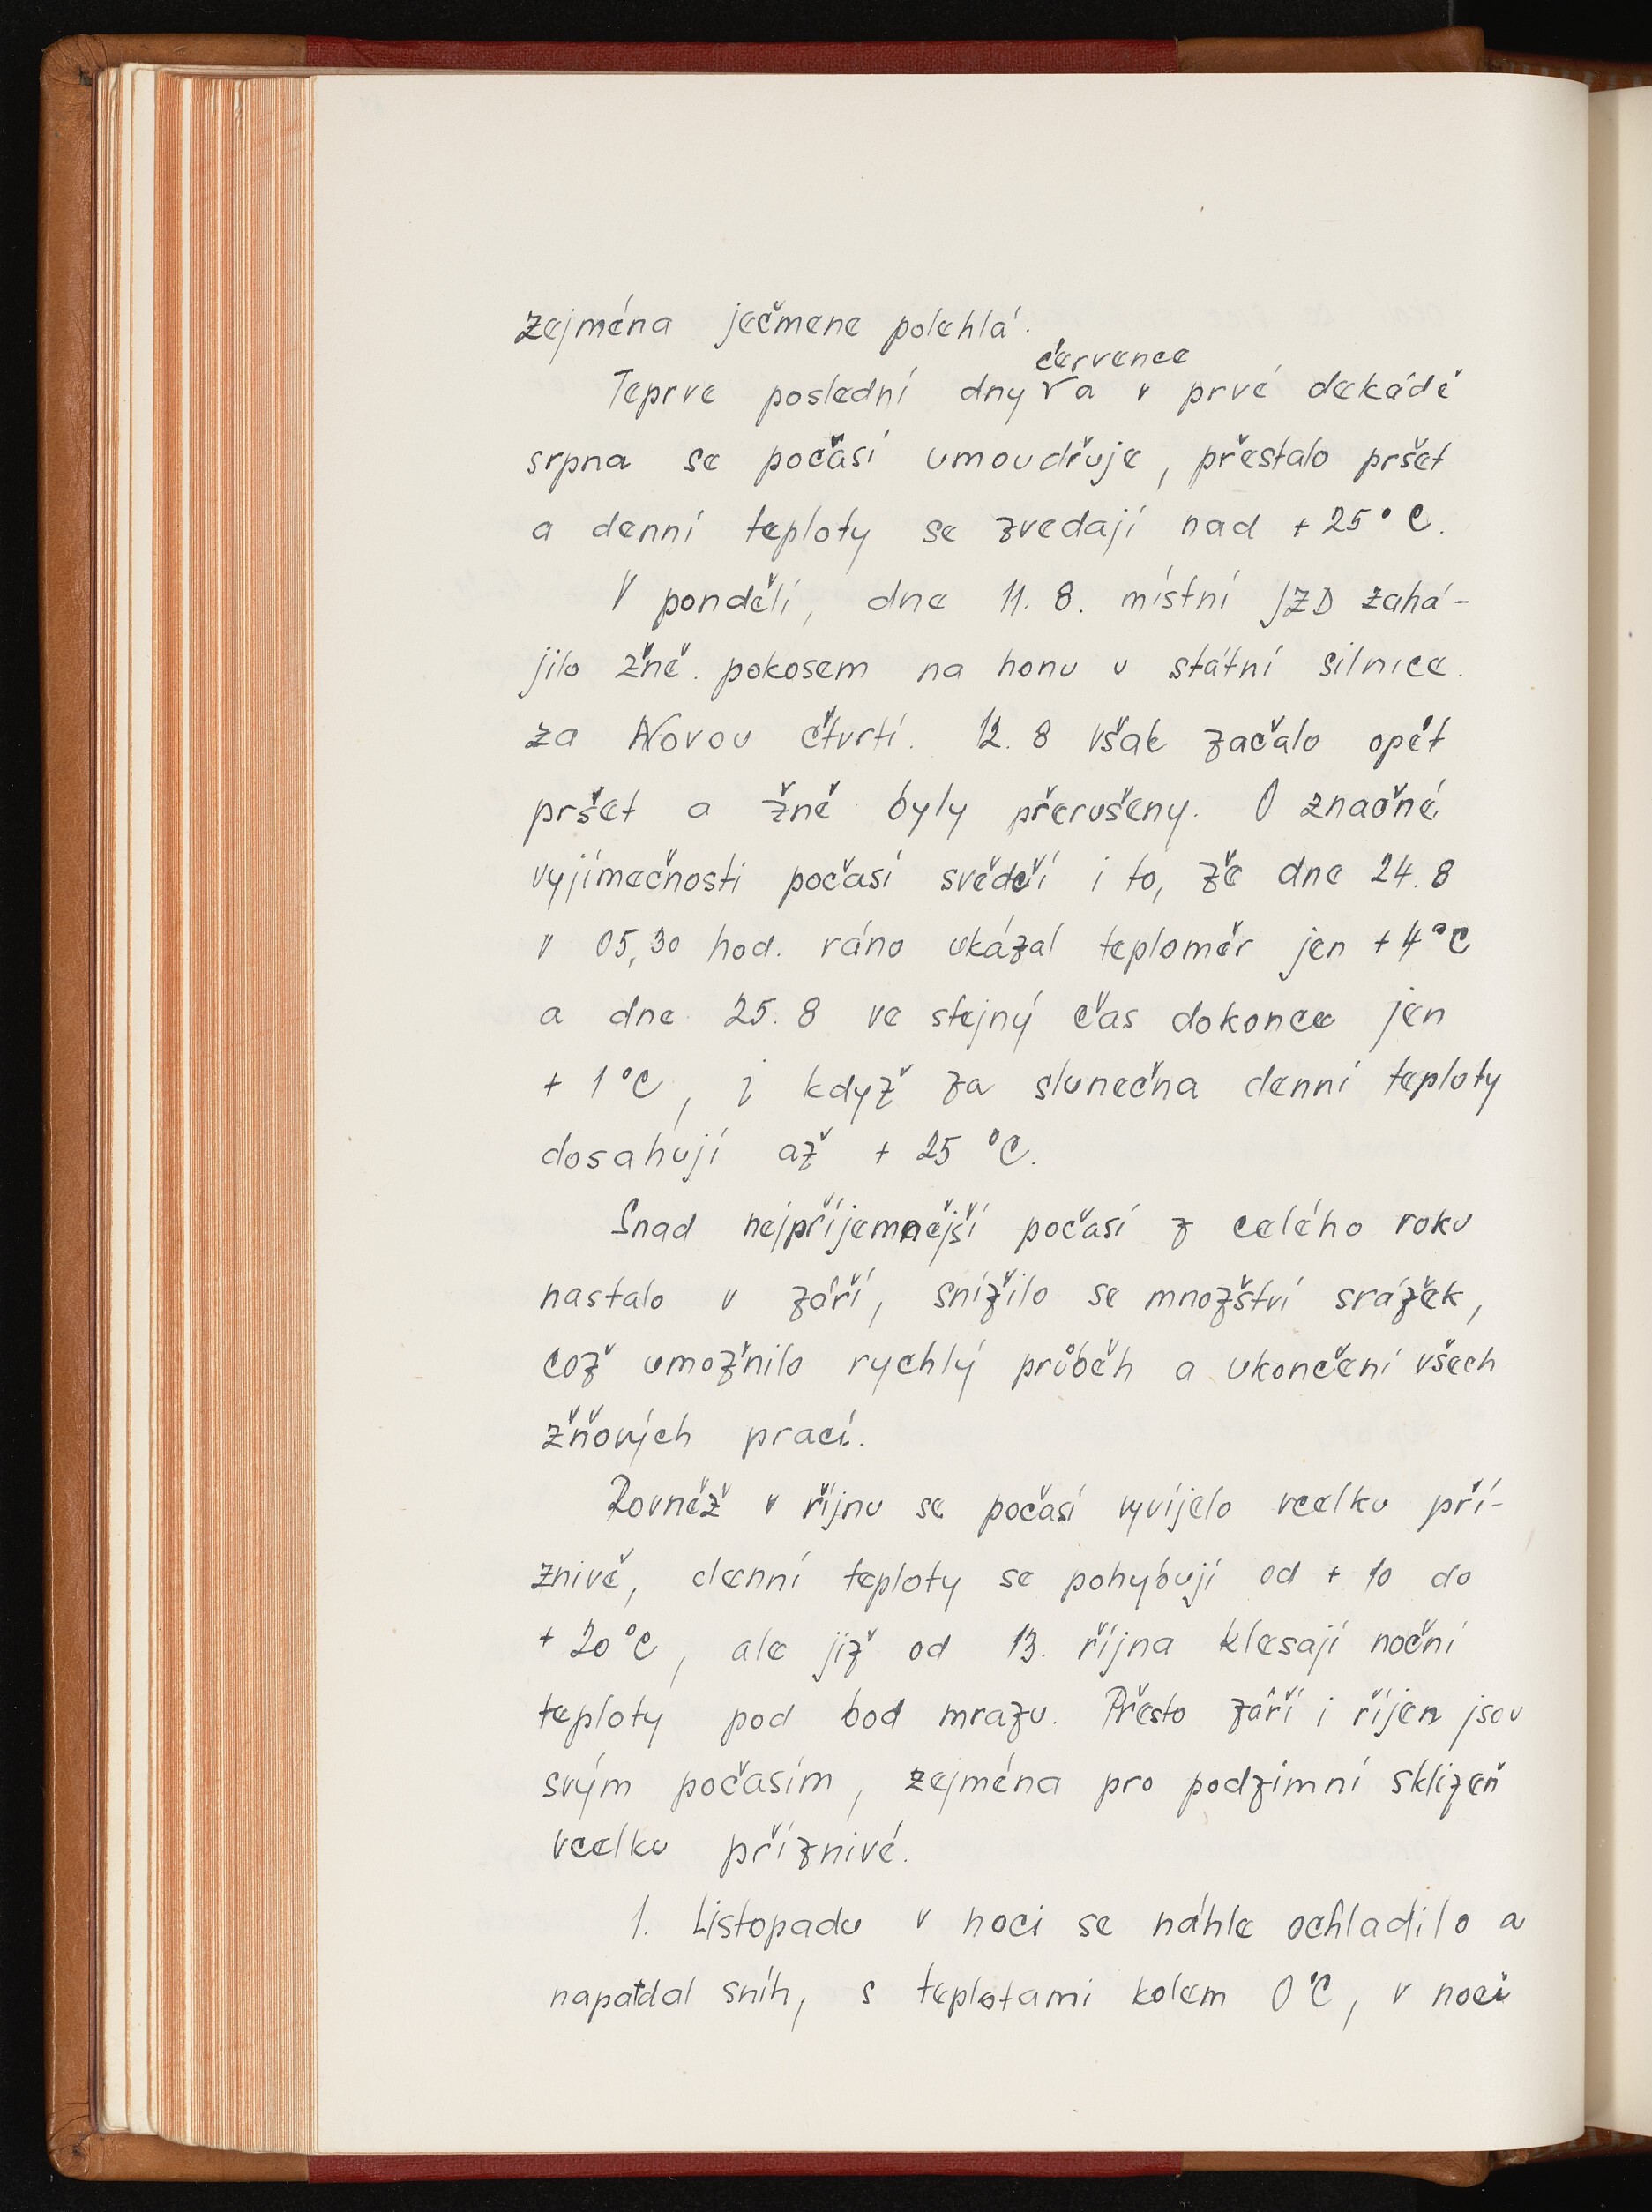 zejména ječmene polehlá.
července
Teprve poslední dny a v prvé dekádě
srpna se počasí umoudřuje, přestalo pršet
a denní teploty se zvedají nad +25°C.
V pondělí, dne 11. 8. místní JZD zahá-
jilo žně. pokosem na honu u státní silnice.
za Novou čtvrtí. 12. 8 však začalo opět
pršet a žně byly přerušeny. O značné
vyjímečnosti počasí svědčí i to, že dne 24. 8
v 05,30 hod. ráno ukázal teploměr jen +4°C
a dne 25. 8 ve stejný čas dokonce jen
+ 1°C, i když za slunečna denní teploty
dosahují až + 25 °C.
Snad nejpříjemnější počasí z celého roku
nastalo v září, snížilo se množství srážek,
což umožnilo rychlý průběh a ukončení všech
žňových prací.
Rovněž v říjnu se počasí vyvíjelo vcelku pří-
znivě, denní teploty se pohybují od + 10 do
+ 20°C, ale již od 13. října klesají noční
teploty pod bod mrazu. Přesto září i říjen jsou
svým počasím, zejména pro podzimní sklizeň
vcelku příznivé.
1. Listopadu v noci se náhle ochladilo a
napadal sníh, s teplotami kolem 0°C, v noci